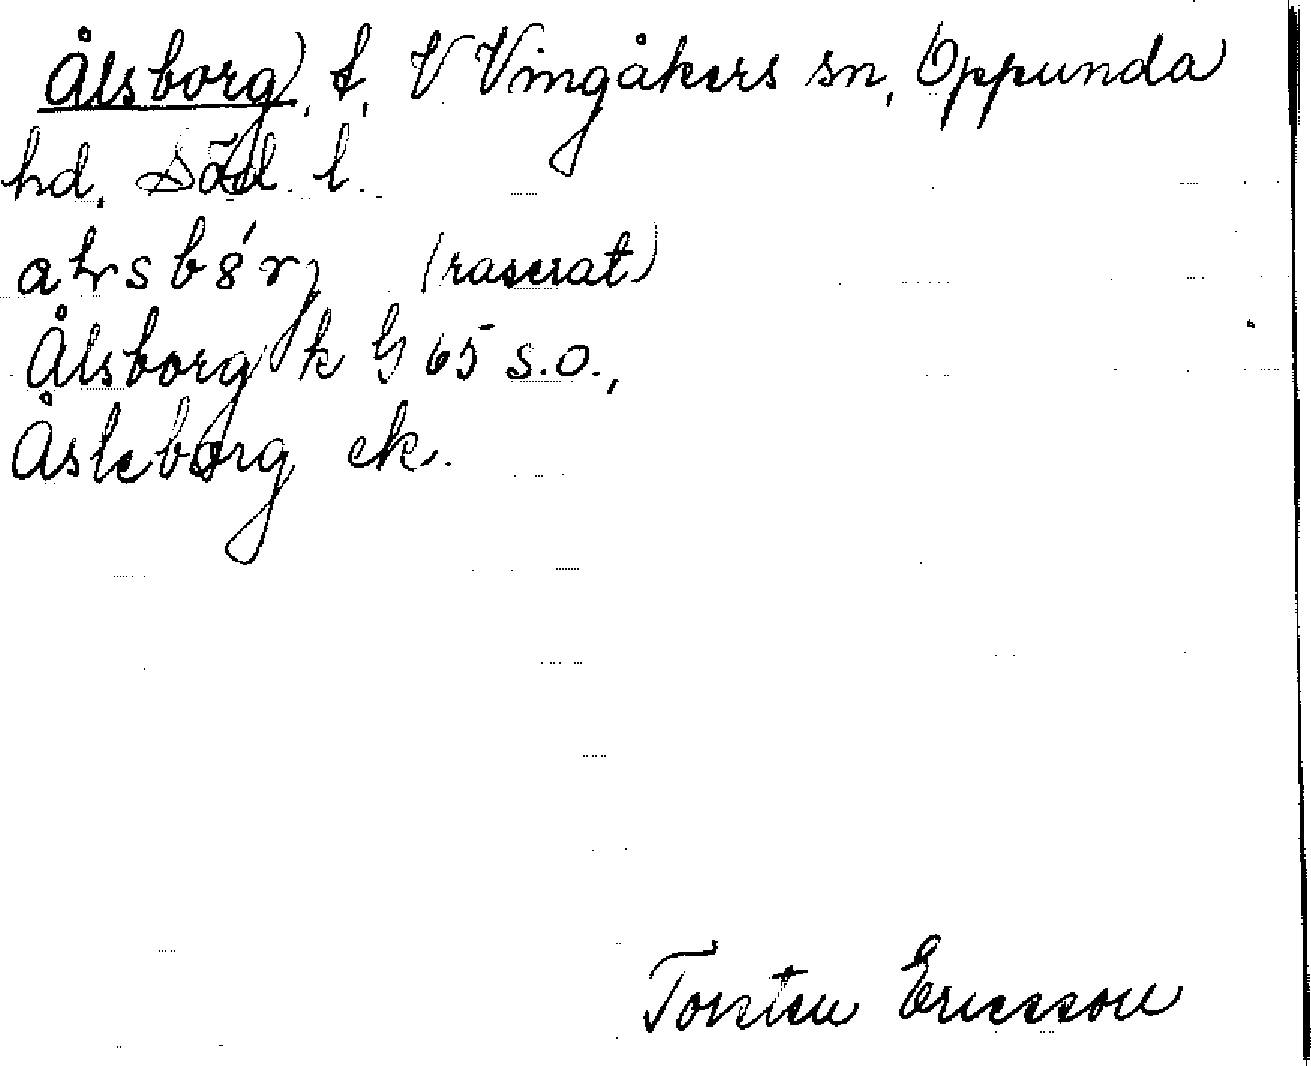 Ålsborg), t, V Vingåkers sn, Oppunda
hd, Södl. l.
(raserat)
Ålsborg k G 65 s.o.,
Åsleborg ek.
Torsten Ericsson